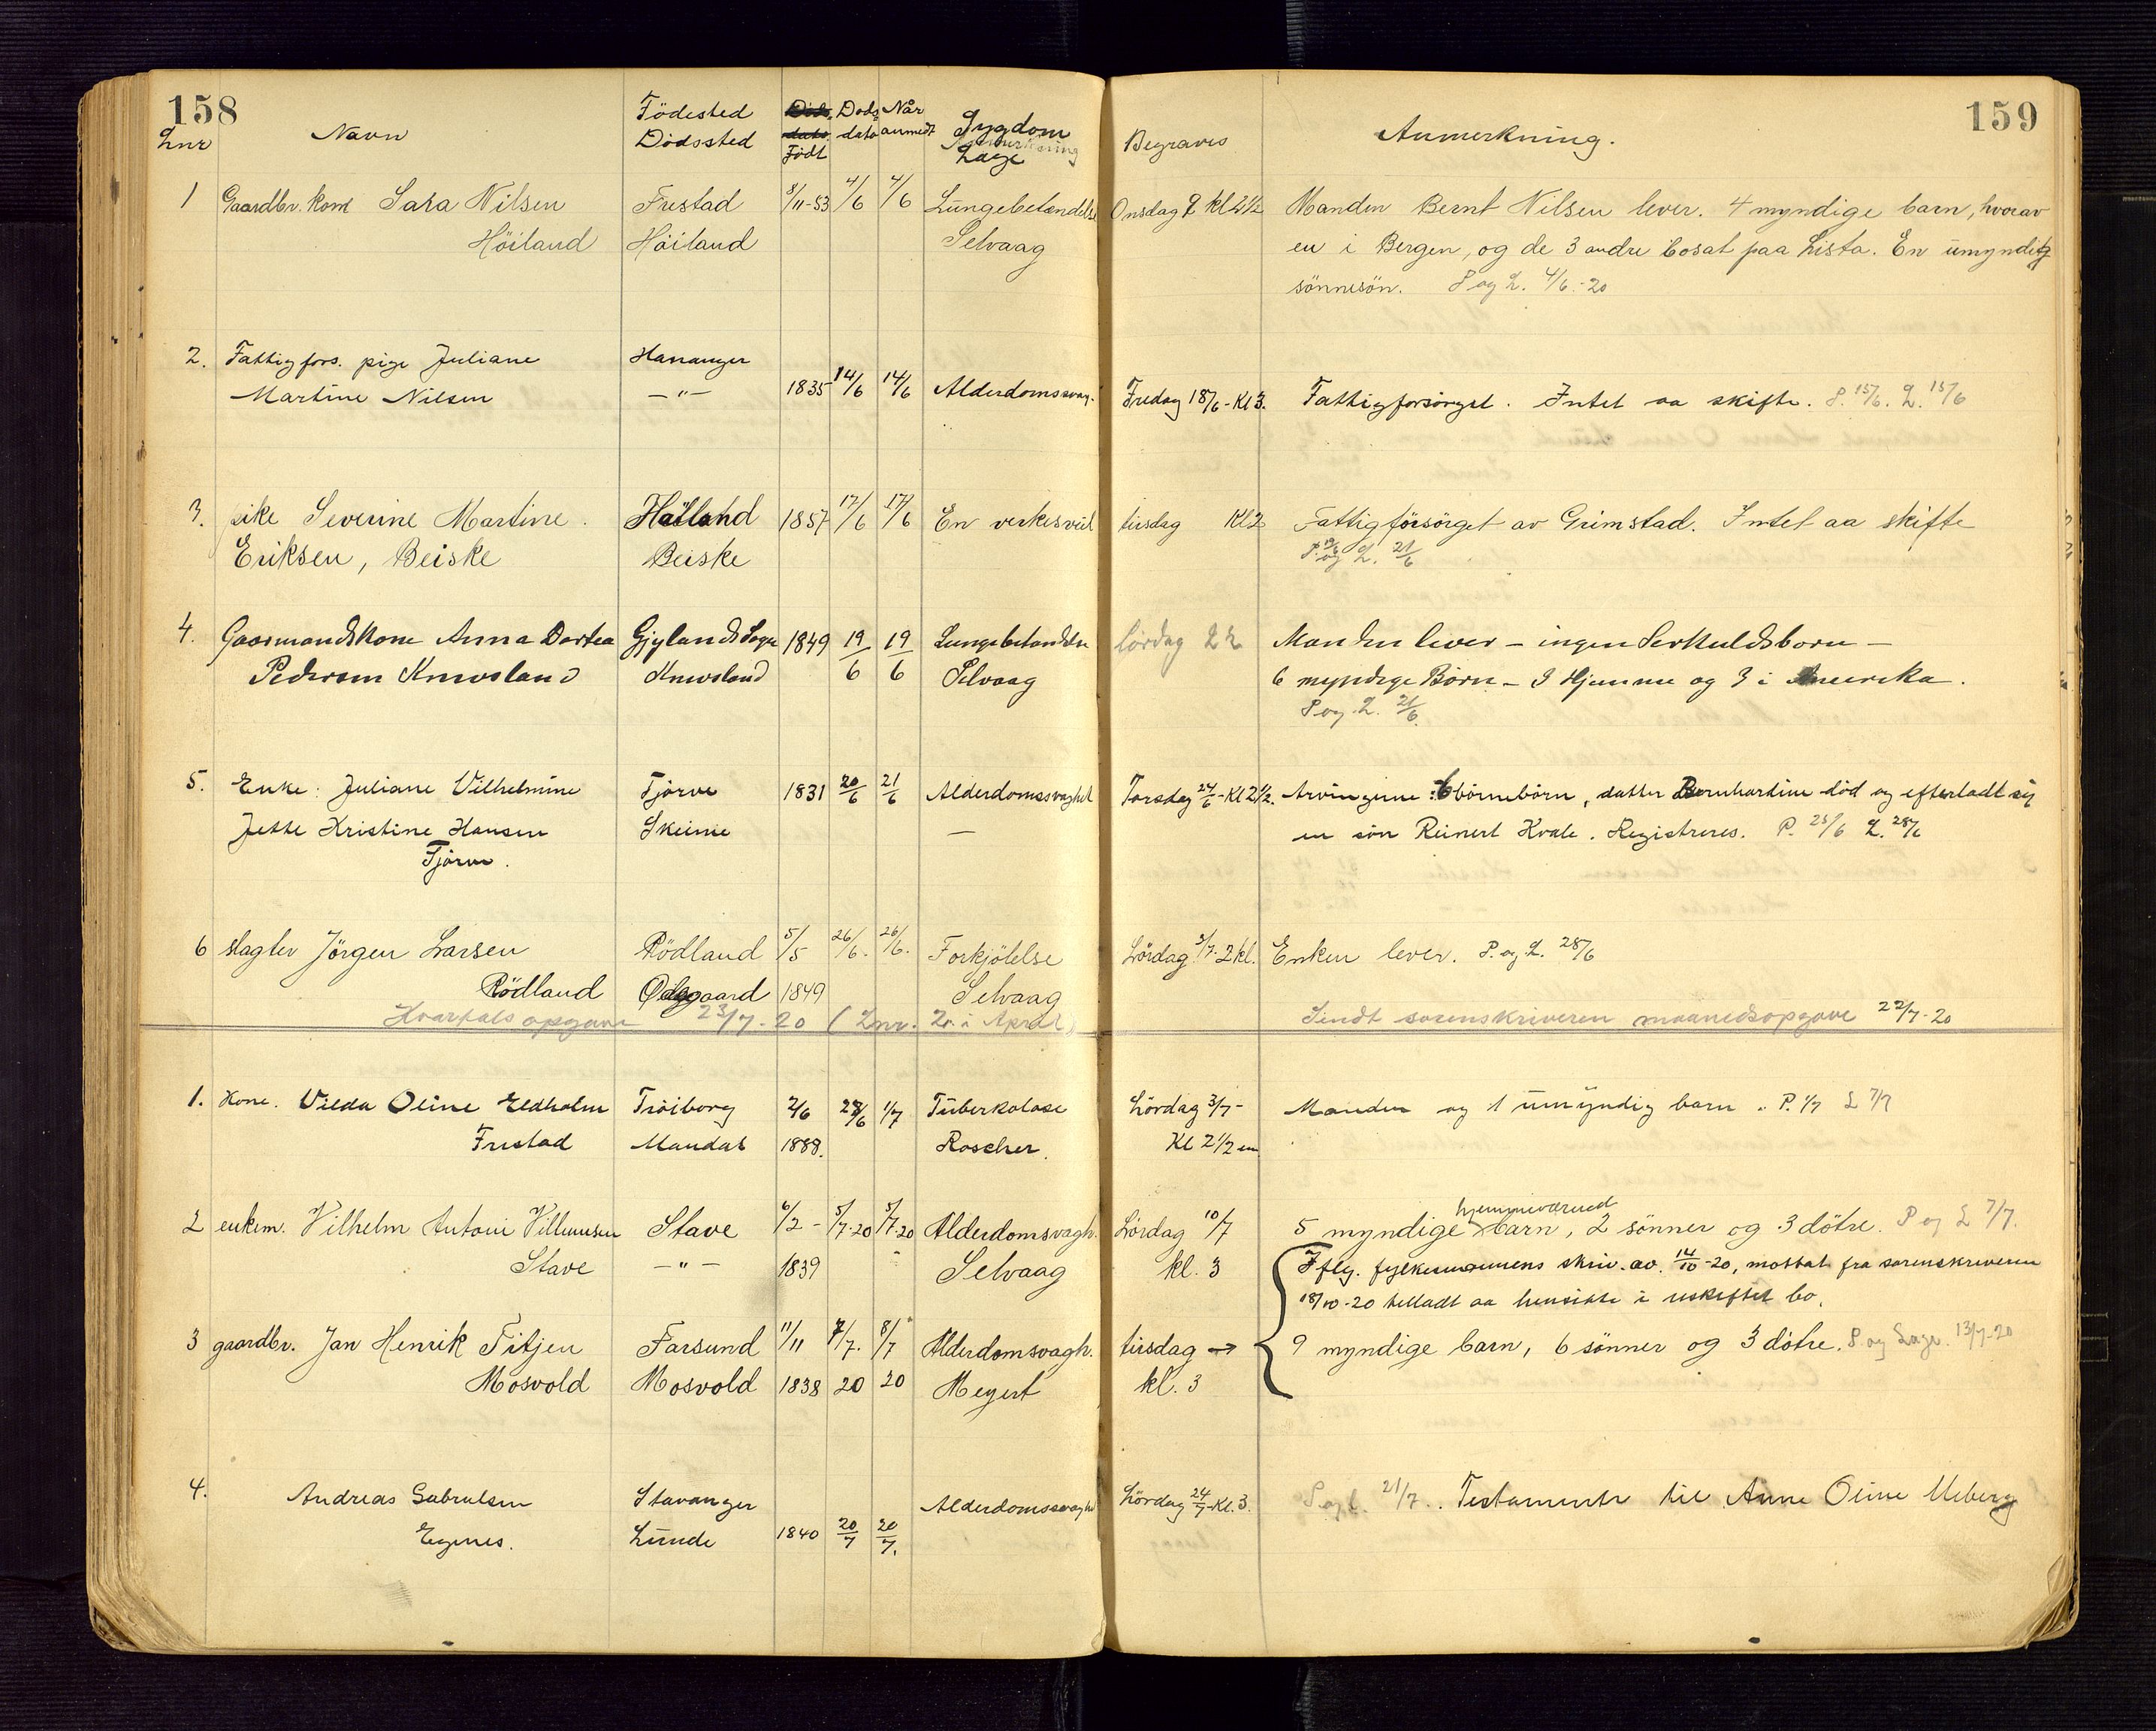 158
159
Lnr Navn Födested Dödssted Födt Döds dato Når anmeldt Sygdom Læge Begraves Anmerkning.
1 Gaardbr. kone Sara Nilsen Frestad 8/11-53 4/6 4/6 Lungebetændelse Onsdag 9 kl 2 1/2 Manden Bernt Nilsen lever. 4 myndige barn, hvorav
Höiland Höiland Selvaag en i Bergen, og de 3 andre bosat paa Lista. En umyndig
sönnesön. P og L. 4/6.-20
2. Fattigfors. pige Juliane Hananger
Martine Nilsen —"— 1835 14/6 14/6 Alderdomssvag. Fredag 18/6-Kl 3. Fattigforsörget. Intet aa skifte. P. 15/6. L. 15/6
3. pike Severine Martine Hälland 1857 17/6 17/6 En verkesvul tirsdag Kl 2 Fattigförsörget av Grimstad. Intet aa skifte
Eriksen, Beiske Beiske P. og L. 21/6
4. Gaarmandskone Anna Dortea Gjylands Sogn 1849 19/6 19/6 Lungebetandelse lördag Manden lever – ingen Serkuldsborn –
Pedersen Knivsland Knivsland Selvaag 6 myndige Börn – 3 Hjemme og 3 i Amerika.
P og L. 21/6.
5. Enke: Juliane Vilhelmine Tjörve 1831 20/6 21/6 Alderdomssvaghet Torsdag 24/6-Kl 2 1/2. Arvingerne: 6 börnebörn, datter Bernhardine död og efterladt sig
Jette Kristine Hansen Skeime — en sön Reinert Kvale. Registreres. P. 25/6 L. 28/6
Tjörve.
6 slagter Jörgen Larsen Rödland 5/5 26/6. 26/6. Forkjölelse Lördag 3/7. 2 kl. Enken lever. P. og L. 28/6
Rödland Ødegaard 1849 Selvaag
Kvartalsopgave 23/7-20 (Lnr. 2 i April) Sendt sorenskriveren maanedsopgave 22/7-20
1. Kone. Vilda Oline Eldholm Tröiborg 2/6 28/6 1/7 Tuberkolose Lördag 3/7- Manden og 1 umyndig barn. P. 1/7 L 7/7
Frestad Mandal 1888. Roscher. Kl 2 1/2 em
hjemmeværend
2 enkem. Vilhelm Antoni Villumsen Stave 6/2- 5/7-20 5/7-20 Alderdomsvagh. Lördag 10/7 5 myndige barn, 2 sönner og 3 dötre. P og L 7/7.
Stave —"— 1839 Selvaag kl. 3 Iflg. fylkesmannens skriv. av. 14/10-20, mottat fra sorenskriveren
18/10-20 tilladt aa hensitte i uskiftet bo.
3 gaardbr. Jan Henrik Titjen Farsund 11/11 7/7. 8/7 Alderdomsvagh. tirsdag → 9 myndige barn, 6 sönner og 3 dötre. P og Læge. 13/7-20
Mosvold Mosvold 1838 20 20 Meyert kl. 3
4. Andreas Gabrielsen Stavanger Alderdomssvaghe Lördag 24/7-Kl. 3. P og L. 21/7. Testamente til Anne Oline Meberg
Egenes. Lunde 1840 20/7 20/7.